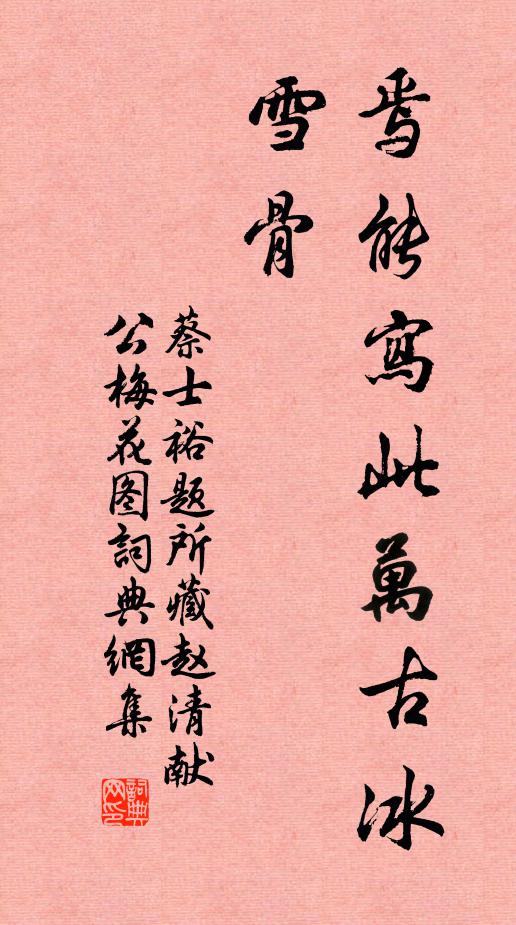 焉能寫此萬古冰
雪骨
蔡士裕題所藏赵清献
公梅花图詞典網集
詞典
网印